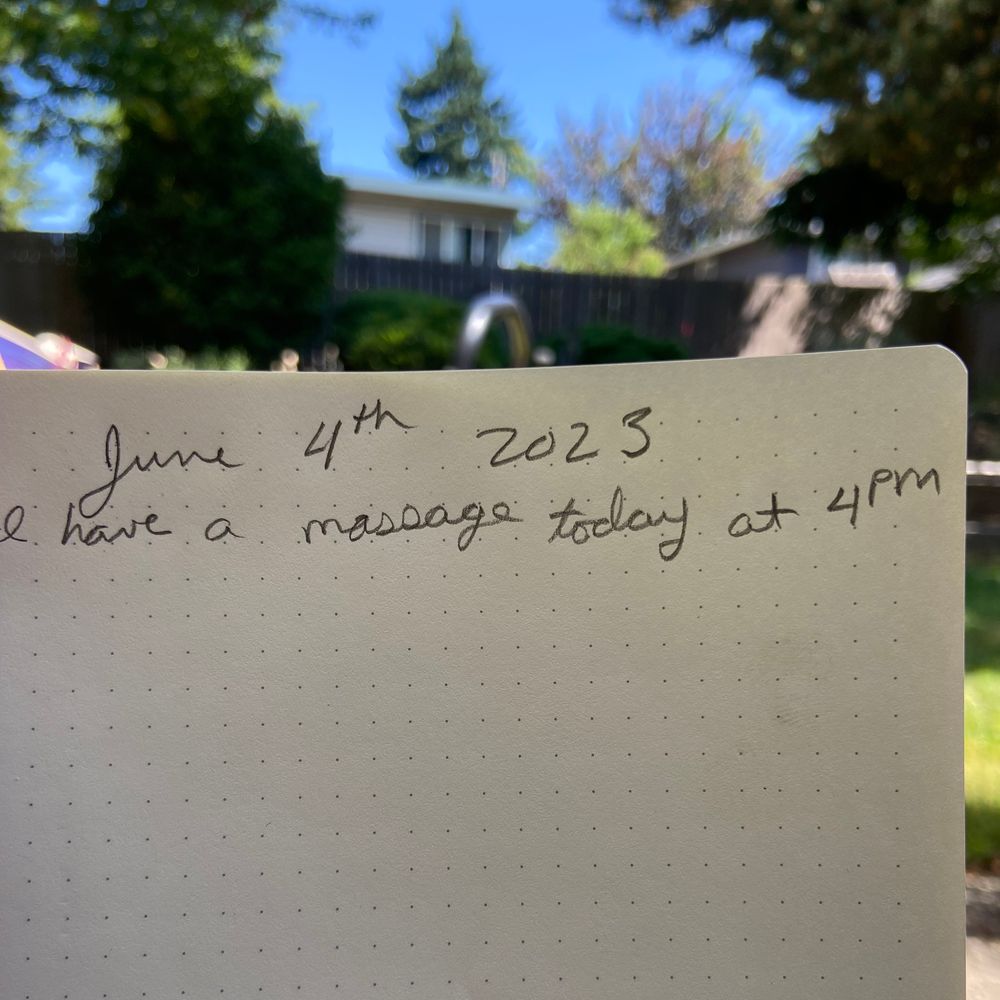 June 4th 2023
I have a massage today at 4PM